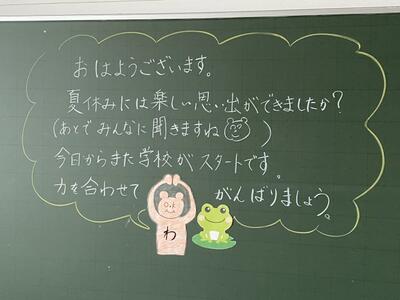 おはようございます。
夏休みには楽しい思い出ができましたか?
(あとでみんなに聞きますね )
今日からまた学校がスタートです。
力を合わせて がんばりましょう。
わ